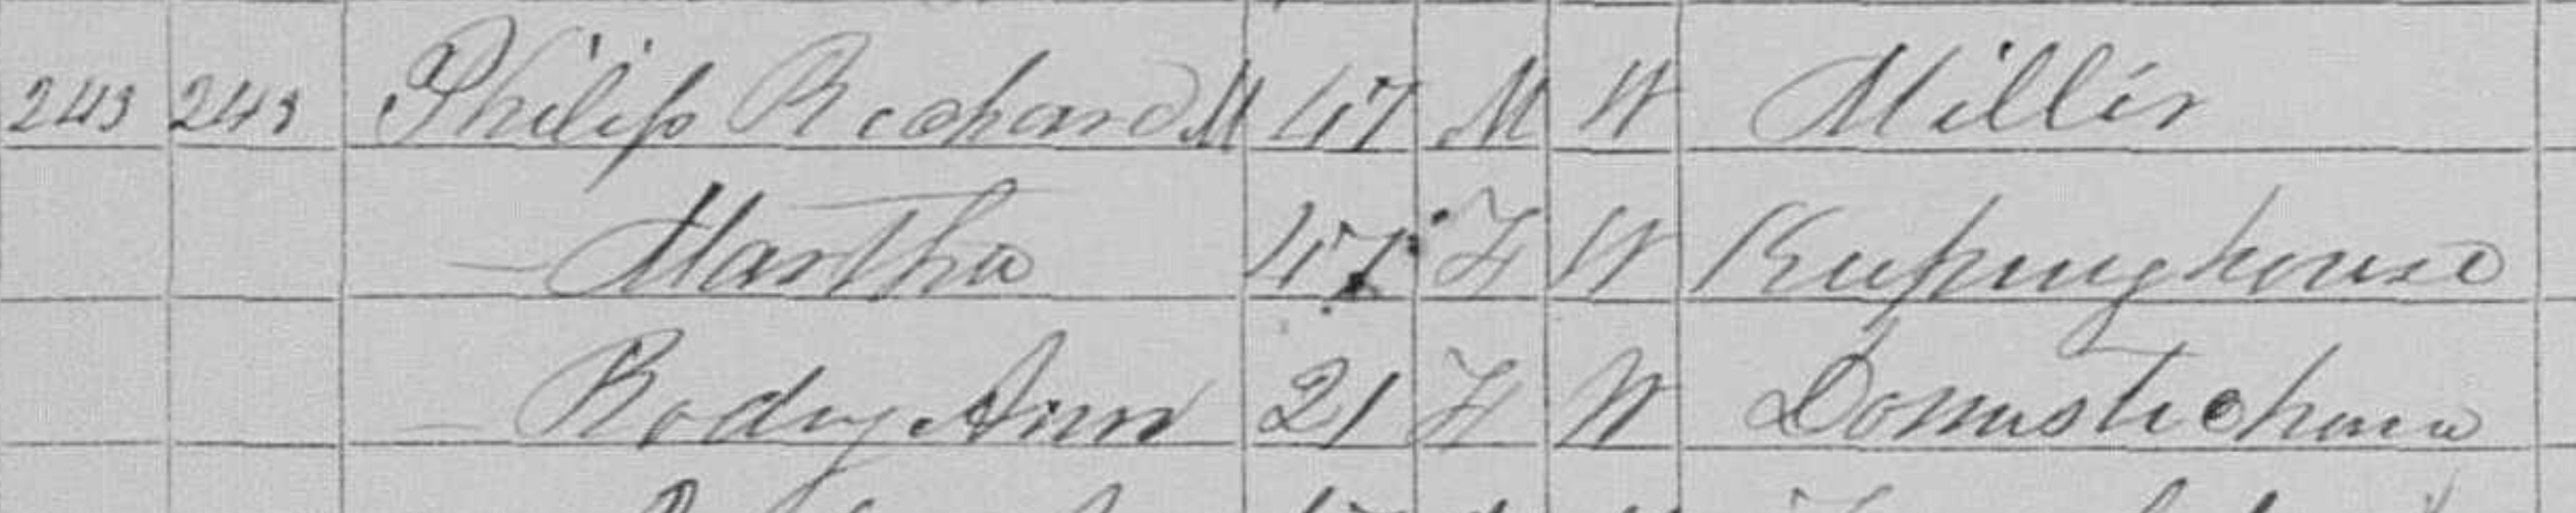 243 243 Philips Richard M 47 M W Miller
— Martha 47 F W Keeping house
— Rody Ann 21 F W Domestic